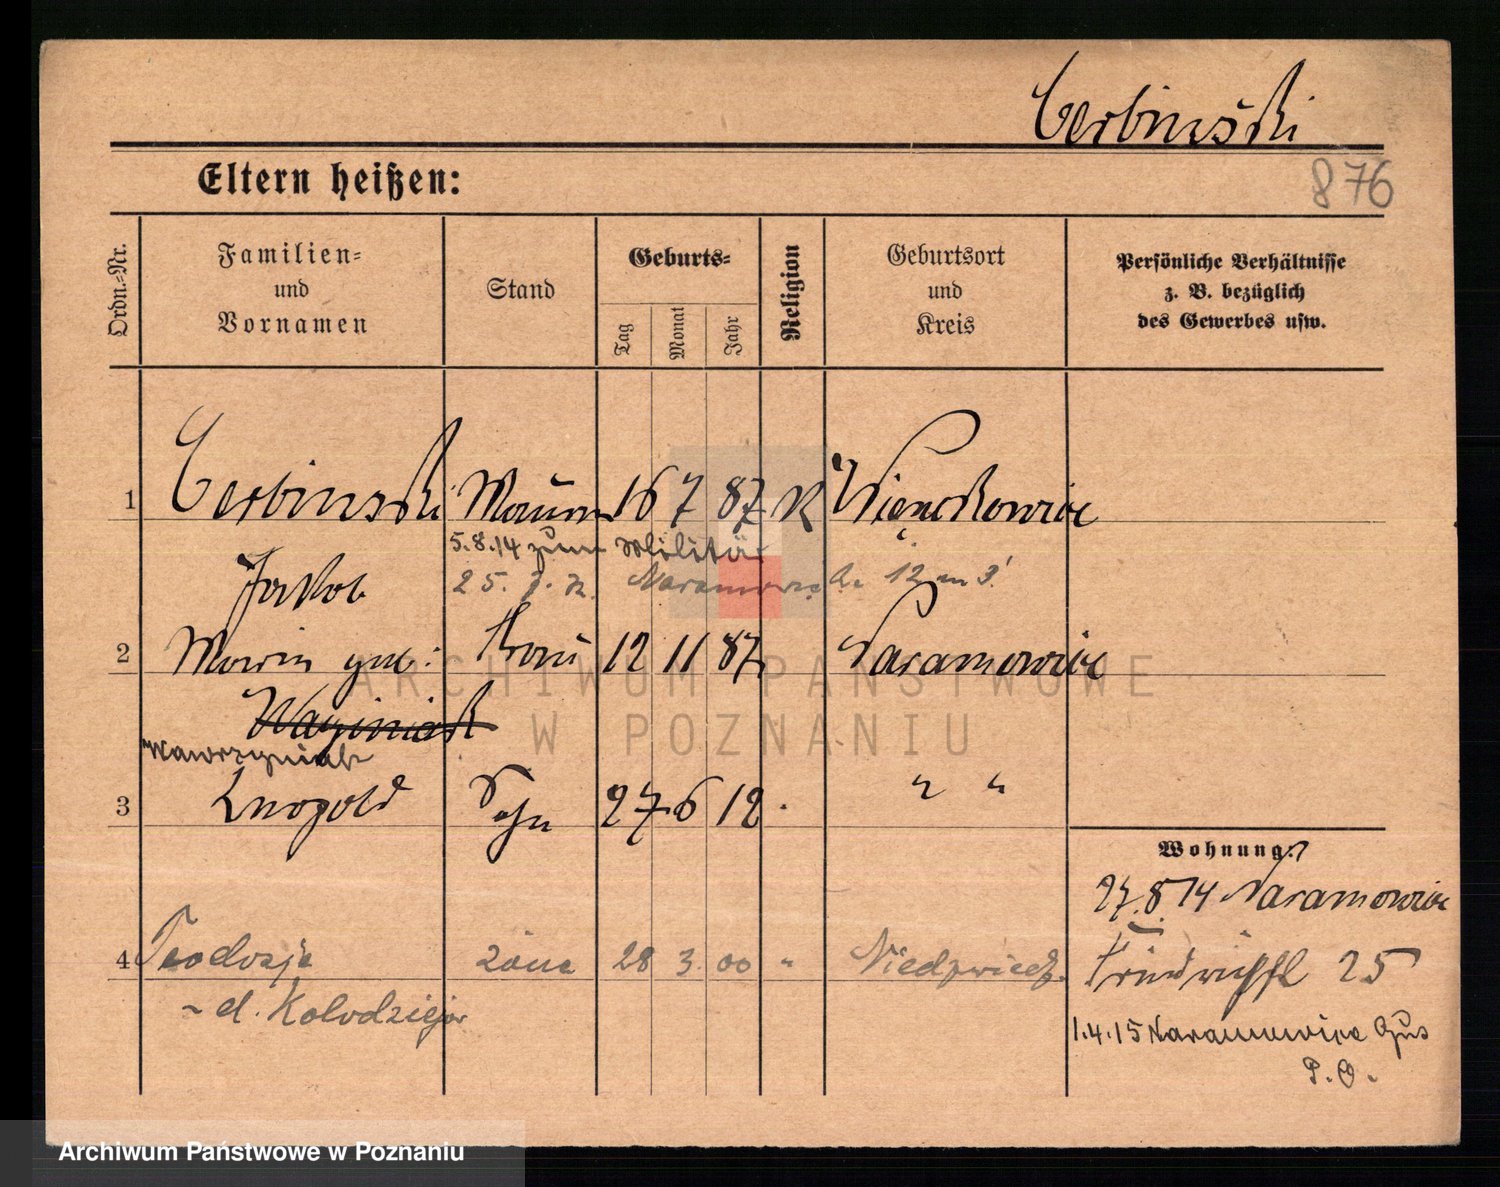 Cerbinski
Eltern heißen:
876
Ordn.-Nr.
Familien-
und
Vornamen
Stand
Geburts-
Tag
Monat
Jahr
Religion
Geburtsort
und
Kreis
Persönliche Verhältnisse
z. B. bezüglich
des Gewerbes usw.
1 Cerbinski Maurer 16 7 87 K Wienckowice
5.8.14 zum Militär
Jakob
25. Naramowicka 12 m 9
2 Marie geb: Frau 12 11 87 Naramowice
Wawrzyniak
3 Leopold Sohn 27 6 12 " "
Wohnung:
27.8.14 Naramowice
4 Teodozja żona 28 3. 00 " Niedzwiedz.
Friedrichstr 25
- d. Kołodziejów
1.4.15 Naramowice Gus
P.O.
ARCHIWUM PAŃSTWOWE
W POZNANIU
Archiwum Państwowe w Poznaniu